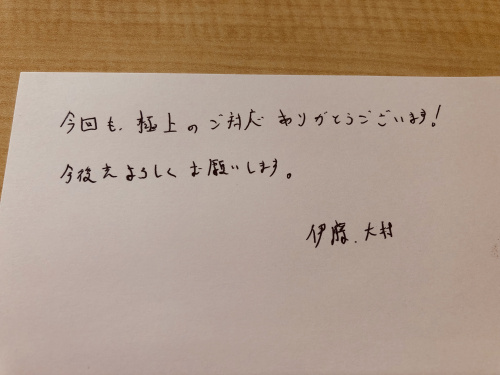 今回も、極上のご対応ありがとうございます!
今後もよろしくお願いします。
伊藤、大村